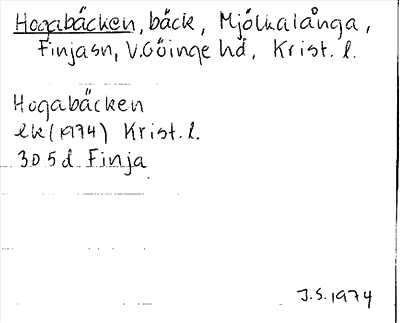 Hogabäcken, bäck, Mjölkalånga,
Finjasn, V.Göinge hd, Krist. l.
Hogabäcken
ek (1974) Krist. l.
305d Finja
J.S. 1974